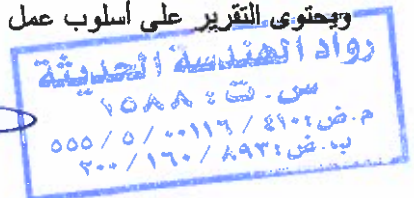 ويحتوى التقرير على أسلوب عمل
رواد الهندسة الحديثة
س. ت: ٧٥٨٨
م.ض: ٤١٠ / ٠٠١١٦ / ٥ / ٥٥٥
ب.ض: ٨٩٣ / ١٦٠ / ٢٠٠